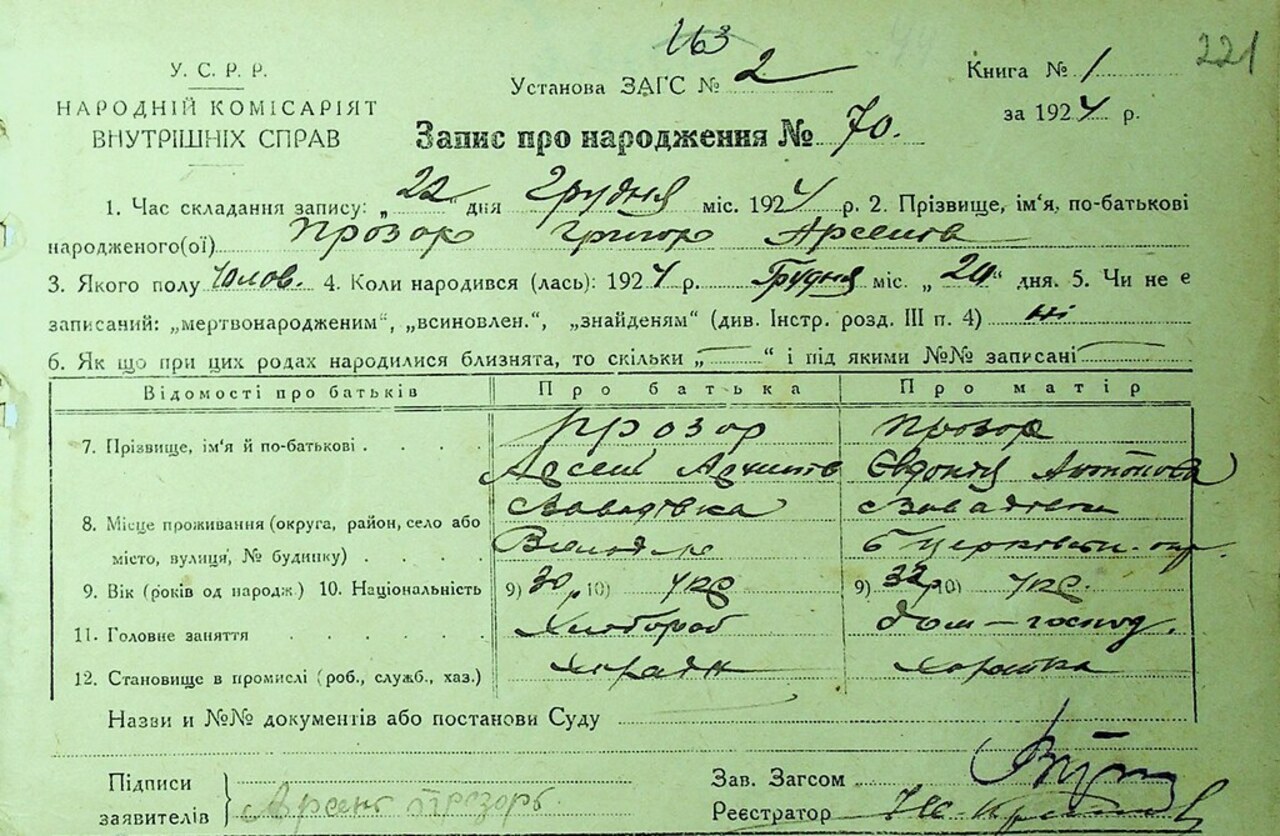 163
221
У. С. Р. Р.
НАРОДНІЙ КОМІСАРІЯТ
ВНУТРІШНІХ СПРАВ
Установа ЗАГС № 2
Книга № 1
за 1924 р.
Запис про народження № 70.
1. Час складання запису: „22“ дня Грудня міс. 1924 р. 2. Прізвище, ім'я, по-батькові
народженого(ої) Прозор Григор Арсенів
3. Якого полу Чолов. 4. Коли народився (лась): 1924 р. Грудня міс. „20“ дня. 5. Чи не є
записаний: „мертвонародженим“, „всиновлен.“, „знайденям“ (див. Інстр. розд. III п. 4) ні
6. Як що при цих родах народилися близнята, то скільки „—“ і під якими №№ записані —
Відомості про батьків Про батька Про матір
7. Прізвище, ім'я й по-батькові . . . . Прозор Прозор
Арсен Архипів Євдокія Антонова
8. Місце проживання (округа, район, село або Завадівка Завадівка
місто, вулиця, № будинку) . . . . Б Церківськ. окр.
9. Вік (років од народж.) 10. Національність 9) 30 р 10) укр 9) 32 р 10) укр.
11. Головне заняття . . . . . . Хлібороб дом – господ.
12. Становище в промислі (роб., служб., хаз.)
Назви и №№ документів або постанови Суду
Підписи
заявителів Арсень Прозорь
Зав. Загсом
Реєстратор